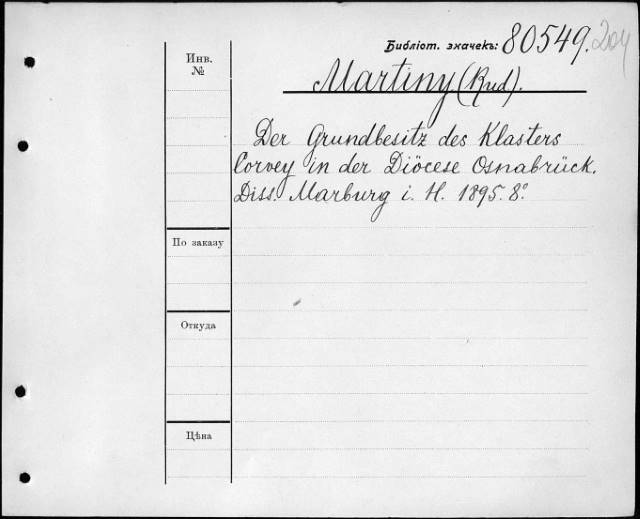 Библіот. значекъ: 80549. 204
Инв. №
Martiny (Rud).
Der Grundbesitz des Klasters
Corvey in der Diöcese Osnabrück.
Diss. Marburg i. H. 1895. 8º
По заказу
Откуда
Цѣна